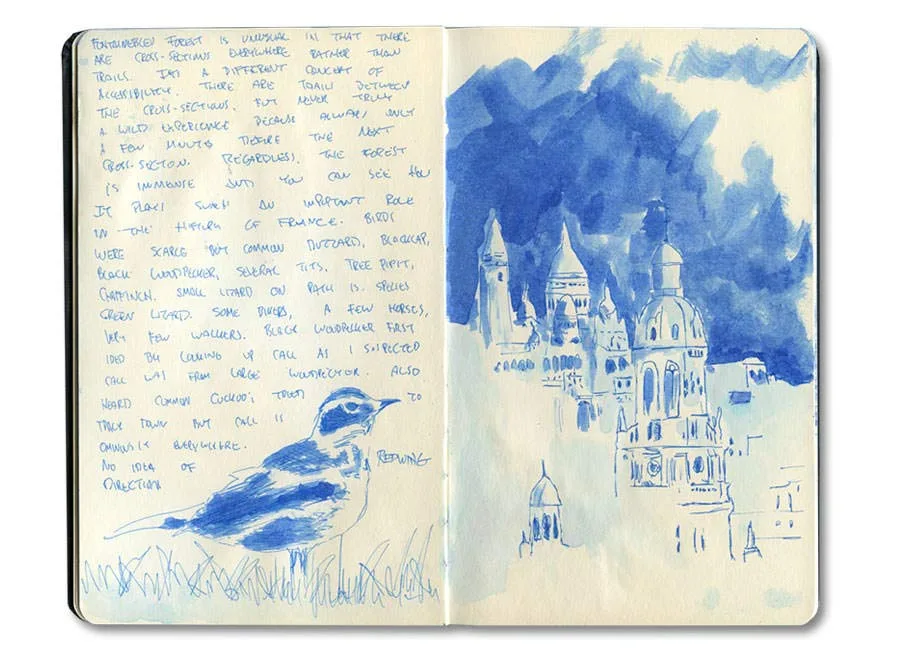 FONTAINEBLEU FOREST IS UNUSUAL IN THAT THERE
ARE CROSS-SECTIONS EVERYWHERE RATHER THAN
TRAILS. IT'S A DIFFERENT CONCEPT OF
ACCESSIBILITY. THERE ARE TRAILS BETWEEN
THE CROSS-SECTIONS. BUT NEVER TRULY
A WILD EXPERIENCE BECAUSE ALWAYS ONLY
A FEW MINUTES BEFORE THE NEXT
CROSS-SECTION. REGARDLESS, THE FOREST
IS IMMENSE AND YOU CAN SEE HOW
IT PLAYS SUCH AN IMPORTANT ROLE
IN THE HISTORY OF FRANCE. BIRDS
WERE SCARCE BUT COMMON BUZZARD, BLACKCAP,
BLACK WOODPECKER, SEVERAL TITS, TREE PIPIT,
CHAFFINCH. SMALL LIZARD ON PATH IS SPECIES
GREEN LIZARD. SOME BIKERS, A FEW HORSES,
VERY FEW WALKERS. BLACK WOODPECKER FIRST
IDED BY LOOKING UP CALL AS I SUSPECTED
CALL WAS FROM LARGE WOODPECKER. ALSO
HEARD COMMON CUCKOO. TRIED TO
TRACK DOWN BUT CALL IS
OMINOUSLY EVERYWHERE.
NO IDEA OF
DIRECTION
REDWING